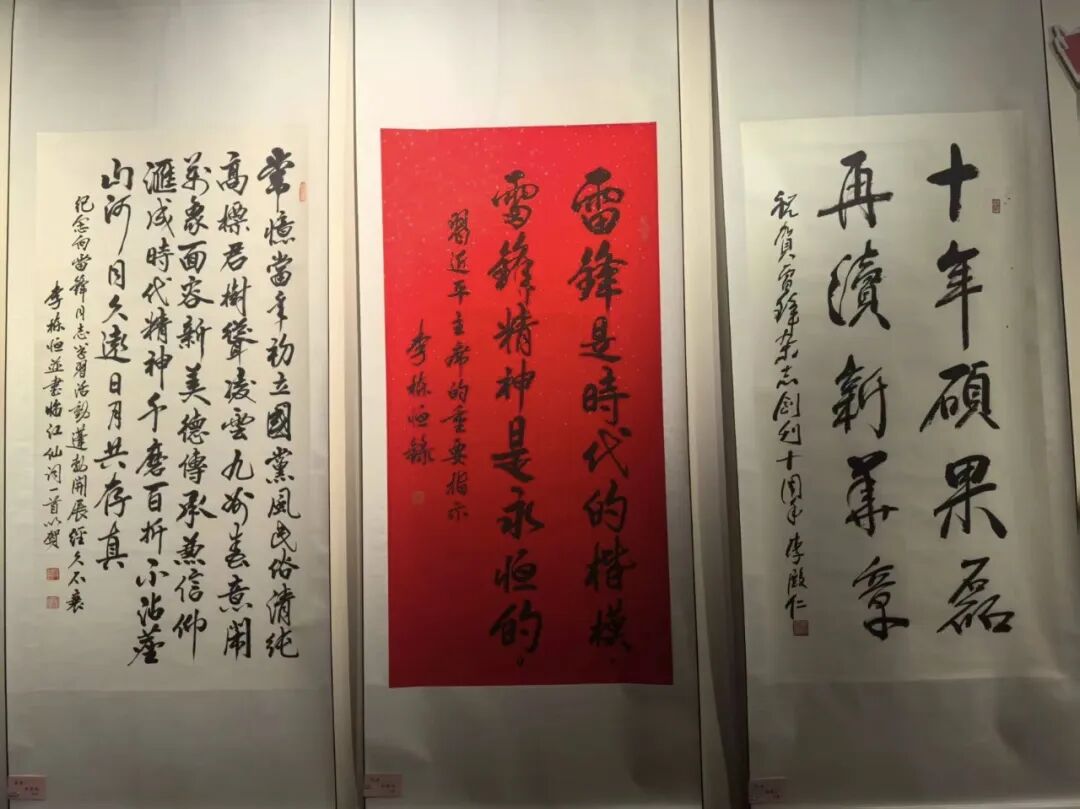 十年碩果磊
再續新華章
祝賀雷鋒杂志創刊十周年李殿仁
雷鋒是時代的楷模，
雷鋒精神是永恒的。
習近平主席的重要指示
李栋恒錄
常憶當年初立國黨風民俗清純
高標君樹聳凌雲九州春意鬧
萬象面容新美德傳承兼信仰
滙成時代精神千磨百折不沾塵
山河同久遠日月共存真
紀念向雷鋒同志学習活動蓬勃開展經久不衰
李栋恒並書临江仙词一首以賀